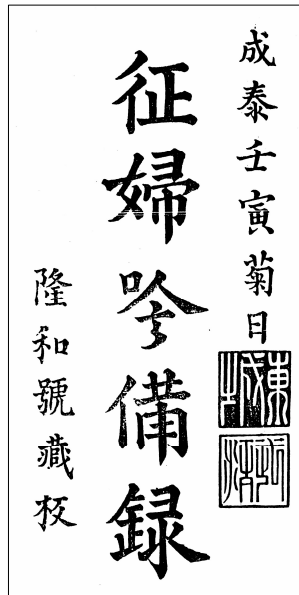 成泰壬寅菊日
征婦吟備録
隆和號藏板